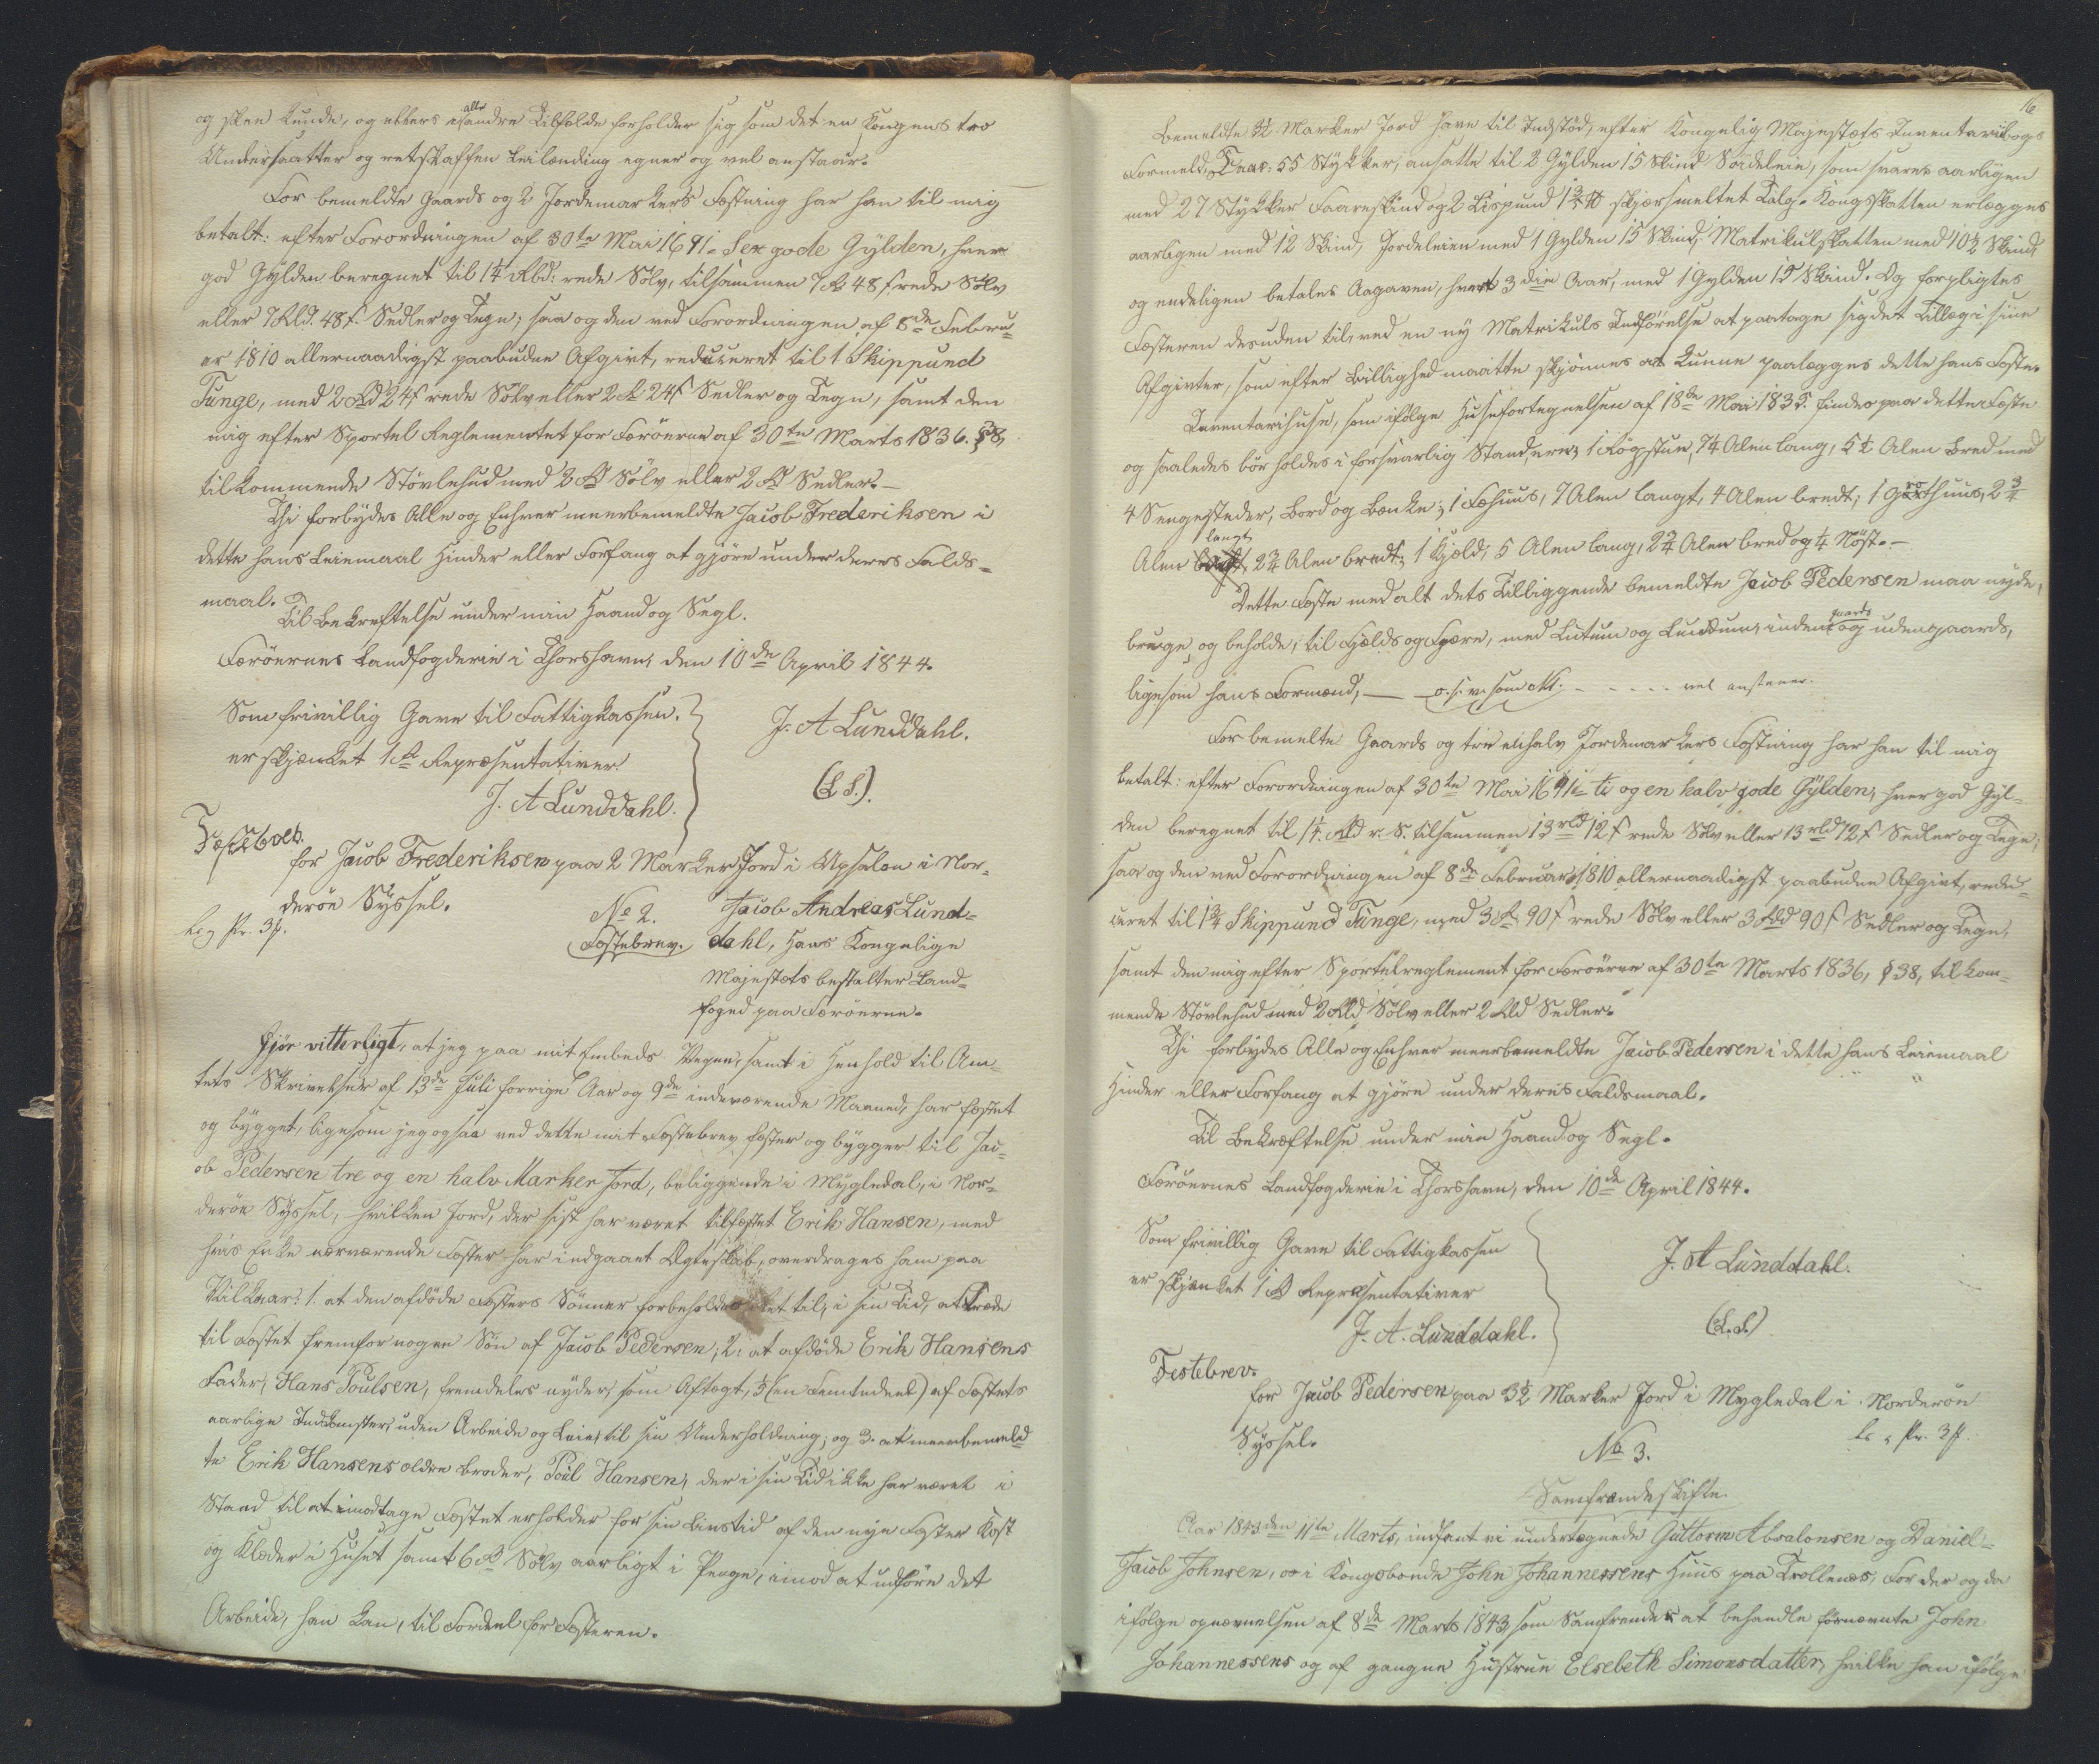 og skee kunde, og ellers i alle andre Tilfælde forholder sig som det en Kongens tro
Undersaatter og retskaffen Leilænding egner og vel anstaaer.
For bemeldte Gaards og 2 Jordemarkers Fæstning har han til mig
betalt: efter Forordningen af 30te Mai 1691 - Sex gode Gylden, hver
god Gylden beregnet til 1¼ Rbd: rede Sölv, tilsammen 7 Rd 48 s rede Sölv
eller 7 Rbd. 48 s. Sedler og Tegn; saa og den ved Forordningen af 8de Febru-
ar 1810 allernaadigst paabudne Afgivt, reduceret til 1 Skippund
Tunge, med 2 Rbd 24 s rede Sölv eller 2 Rd 24 s Sedler og Tegn, samt den
mig efter Sportel Reglementet for Færöerne af 30te Marts 1836. § 38,
tilkommende Stövlehud med 2 Rd Sölv eller 2 Rd Sedler. -
Thi forbydes Alle og Enhver meerbemeldte Jacob Frederiksen i
dette hans Leiemaal Hinder eller Forfang at gjöre under deres Falds-
maal.
Til Bekræftelse under min Haand og Segl.
Færöernes Landfogderie i Thorshavn, den 10de April 1844.
Som frivillig Gave til Fattigkassen.
er skjænket 1 Rd Repræsentativer
J. A Lunddahl.
J. A Lunddahl.
(L S.).
Fæstebrev.
for Jacob Frederiksen paa 2 Marker Jord i Upsalen i Nor-
deröe Syssel.
No 2.
Fæstebrev.
Jacob Andreas Lund-
dahl, Hans Kongelige
Majestæts bestalter Land-
foged paa Færöerne.
Gjör vitterligt, at jeg paa mit Embeds Vegne, samt i Henhold til Am-
tets Skrivelser af 13de Juli forrige Aar og 9de indeværende Maaned, har fæstet
og bygget, ligesom jeg ogsaa ved dette mit Fæstebrev fæster og bygger til Jac-
ob Pedersen tre og en halv Marker Jord, beliggende i Mygledal, i Nor-
deröe Syssel, hvilken Jord, der sist har været tilfæstet Erik Hansen, med
hvis Enke nærværende Fæster har indgaaet Ægteskab, overdrages ham paa
Vilkaar: 1. at den afdöde Fæsters Sönner forbeholdes Ret til, i sin Tid, at træde
til Fæstet fremfor nogen Sön af Jacob Pedersen; 2. at afdöde Erik Hansens
Fader, Hans Poulsen, fremdeles nyder, som Aftægt, ⅕ (en Femtedeel) af Fæstets
aarlige Indkomster, uden Arbeide og Leie, til sin Underholdning; og 3. at meerbemeld
te Erik Hansens ældre Broder, Poul Hansen, der i sin Tid ikke har været i
Stand til at imodtage Fæstet erholder for sin Livstid af den nye Fæster Kost
og Klæder i Huset samt 6 Rd Sölv aarligt i Penge, imod at udföre det
Arbeide, han kan, til Fordeel for Fæsteren.
16
Bemeldte 3½ Marker Jord have til Indstöd, efter Kongelig Majestæts Inventariibogs
Formeld, Faar: 55 Stykker, ansatte til 2 Gylden 15 Skind Söideleie, som svares aarligen
med 27 Stykker Faareskind og 2 Lispund skjærsmeltet Talg. Kongsskatten erlægges
aarligen med 12 Skind, Jordeleien med 1 Gylden 15 Skind, Matrikulskatten med 10½ Skind,
og endeligen betales Aagaven, hvert 3die Aar, med 1 Gylden 15 Skind. Og forpligtes
Fæsteren desuden til, ved en ny Matrikuls Indförelse at paatage sig det Tillæg i sine
Afgivter, som efter Billighed maatte skjönnes at kunne paalægges dette hans Fæste.
Inventarihuse, som ifölge Husefortegnelsen af 18de Mai 1835. findes paa dette Fæste
og saaledes bör holdes i forsvarlig Stand, ere: 1 Rögstue, 7¼ Alen lang, 5½ Alen bred med
4 Sengesteder, Bord og Bænke; 1 Fæhuus, 7 Alen langt, 4 Alen bredt; 1 Grothuus, 2¾
Alen langt, 2¾ Alen bredt; 1 Kjeld, 5 Alen lang, 2¾ Alen bred og ¼ Nöst. -
Dette Fæste med alt dets Tilliggende bemeldte Jacob Pedersen maa nyde,
bruge, og beholde, til Fjelds og Fjære, med Lutum og Lundum, inden gaards og udengaards,
ligesom hans Formænd, — o. s. v. som No 1. - - - - - vel anstaaer.
For bemelte Gaards og tre en halv Jordemarkers Fæstning har han til mig
betalt: efter Forordningen af 30te Mai 1691 - ti og en halv gode Gylden, hver god Gyl-
den beregnet til 1¼ Rbd r. S. tilsammen 13 rbd 12 s rede Sölv eller 13 rbd 12 s Sedler og Tegn;
saa og den ved Forordningen af 8de Februar 1810 allernaadigst paabudne Afgivt, redu-
ceret til 1¾ Skippund Tunge, med 3 Rd 90 s rede Sölv eller 3 Rbd 90 s Sedler og Tegn,
samt den mig efter Sportelreglement for Færöerne af 30te Marts 1836, § 38, tilkom-
mende Stövlehud med 2 Rbd Sölv eller 2 Rbd Sedler.
Thi forbydes Alle og Enhver meerbemeldte Jacob Pedersen i dette hans Leiemaal
Hinder eller Forfang at gjöre under deres Faldsmaal.
Til Bekræftelse under min Haand og Segl.
Færöernes Landfogderie i Thorshavn, den 10de April 1844.
Som frivillig Gave til Fattigkassen
er skjænket 1 Rd Repræsentativer
J. A. Lunddahl.
J. A Lunddahl.
(L. S.)
Festebrev.
for Jacob Pedersen paa 3½ Marker Jord i Mygledal i Norderöe
Syssel.
No 3.
Samfrændeskifte.
Aar 1843 den 11te Marts, indfant vi undertegnede Guttorm Absalonsen og Daniel-
Jacob Johnsen, os i Kongsbonde John Johannessens Huus paa Trollenæs, for der og da
ifölge opnævnelsen af 8de Marts 1843 som Samfrender at behandle fornævnte John
Johannessens og af gangne Hustrue Elsebeth Simonsdatter, hvilke han ifölge